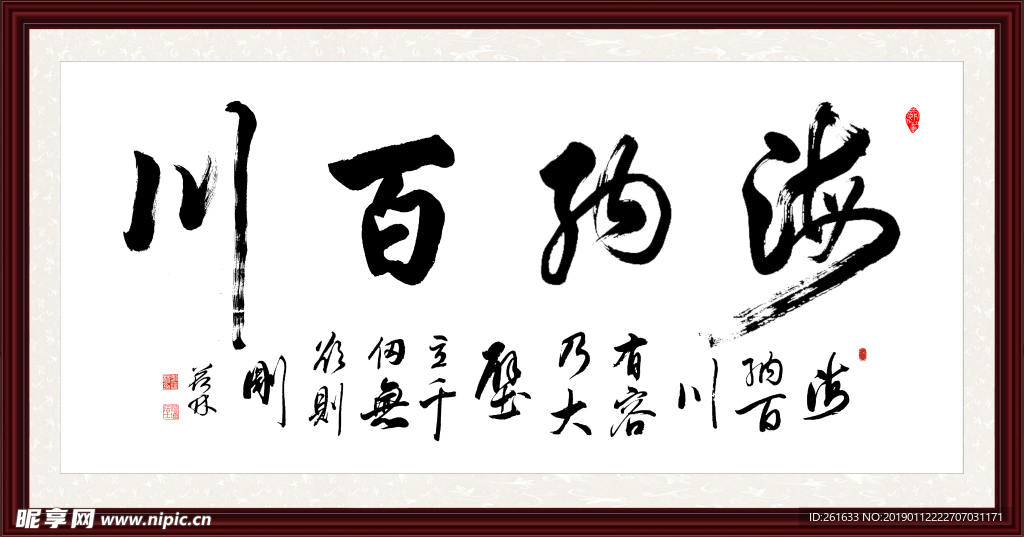 海納百川
海
納百
川
有容
乃大
壁
立千
仞無
欲則
剛
昵享网 www.nipic.cn
ID:261633 NO:20190112222707031171